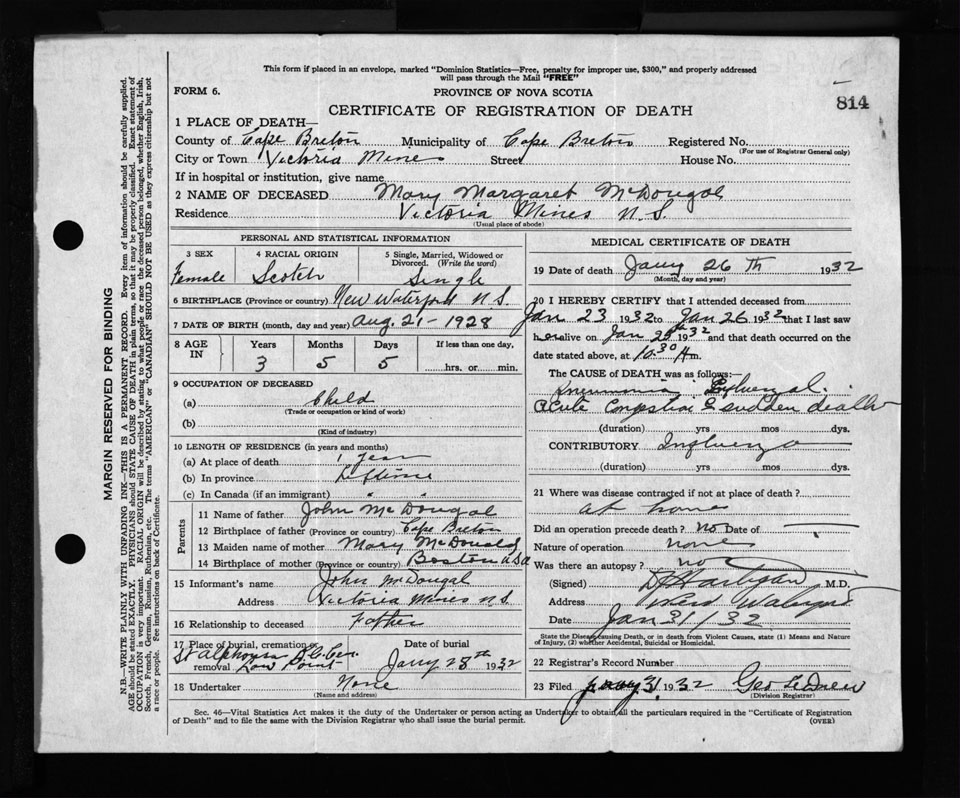 This form if placed in an envelope, marked "Dominion Statistics—Free, penalty for improper use, $300," and properly addressed
will pass through the Mail "FREE"
FORM 6.
PROVINCE OF NOVA SCOTIA
814
CERTIFICATE OF REGISTRATION OF DEATH
1 PLACE OF DEATH—
County of Cape Breton Municipality of Cape Breton Registered No.
(For use of Registrar General only)
City or Town Victoria Mines Street House No.
If in hospital or institution, give name
2 NAME OF DECEASED Mary Margaret McDougal
Residence Victoria Mines N.S.
(Usual place of abode)
PERSONAL AND STATISTICAL INFORMATION
3 SEX 4 RACIAL ORIGIN 5 Single, Married, Widowed or Divorced. (Write the word)
Female Scotch Single
6 BIRTHPLACE (Province or country) New Waterford N.S.
7 DATE OF BIRTH (month, day and year) Aug. 21-1928
8 AGE IN Years Months Days If less than one day,
3 5 5 hrs. or min.
9 OCCUPATION OF DECEASED
(a) Child
(Trade or occupation or kind of work)
(b)
(Kind of industry)
10 LENGTH OF RESIDENCE (in years and months)
(a) At place of death 1 year
(b) In province Lifetime
(c) In Canada (if an immigrant) " "
Parents
11 Name of father John McDougal
12 Birthplace of father (Province or country) Cape Breton
13 Maiden name of mother Mary McDonald
14 Birthplace of mother (Province or country) Boston USA
15 Informant's name John McDougal
Address Victoria Mines N.S.
16 Relationship to deceased Father
17 Place of burial, cremation or removal St Alphonsus R.C. Cem. Low Point
Date of burial Jany 28th 1932
18 Undertaker None
(Name and address)
MEDICAL CERTIFICATE OF DEATH
19 Date of death Jany 26th 1932
(Month, day and year)
20 I HEREBY CERTIFY that I attended deceased from
Jan 23 1932 to Jan 26 1932 that I last saw
her alive on Jan 1932 and that death occurred on the
date stated above, at 10.30 m.
The CAUSE of DEATH was as follows:—
Pneumonia Influenzal.
Acute Congestion & sudden death
(duration) yrs mos dys.
CONTRIBUTORY Influenza
(duration) yrs mos dys.
21 Where was disease contracted if not at place of death?
at home
Did an operation precede death? no Date of
Nature of operation none
Was there an autopsy? no
(Signed) Hartigan M.D.
Address New Waterford
Date Jan 31/32
State the Disease causing Death, or in death from Violent Causes, state (1) Means and Nature
of Injury, (2) whether Accidental, Suicidal or Homicidal.
22 Registrar's Record Number
23 Filed Jany 31 1932 Geo E Drew
(Division Registrar)
Sec. 46—Vital Statistics Act makes it the duty of the Undertaker or person acting as Undertaker to obtain all the particulars required in the "Certificate of Registration
of Death" and to file the same with the Division Registrar who shall issue the burial permit.
(OVER)
MARGIN RESERVED FOR BINDING
N.B.—WRITE PLAINLY WITH UNFADING INK—THIS IS A PERMANENT RECORD. Every item of information should be carefully supplied.
AGE should be stated EXACTLY. PHYSICIANS should STATE CAUSE OF DEATH in plain terms, so that it may be properly classified. Exact statement of
OCCUPATION is very important. RACIAL ORIGIN will be described by stating to what people or race the deceased person belonged, whether English, Irish,
Scotch, French, German, Russian, Ruthenian, etc. The terms "AMERICAN" or "CANADIAN" SHOULD NOT BE USED as they express citizenship but not
a race or people. See instructions on back of Certificate.